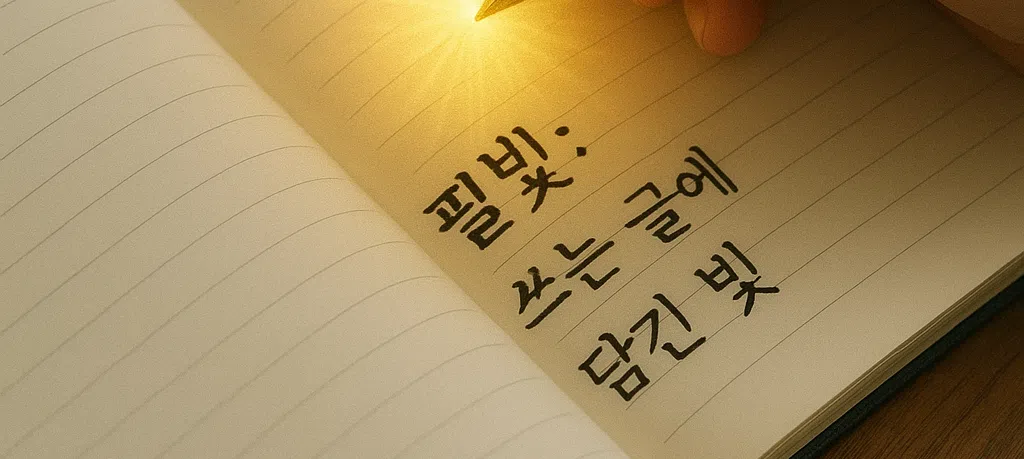 필빛:
쓰는 글에
담긴 빛